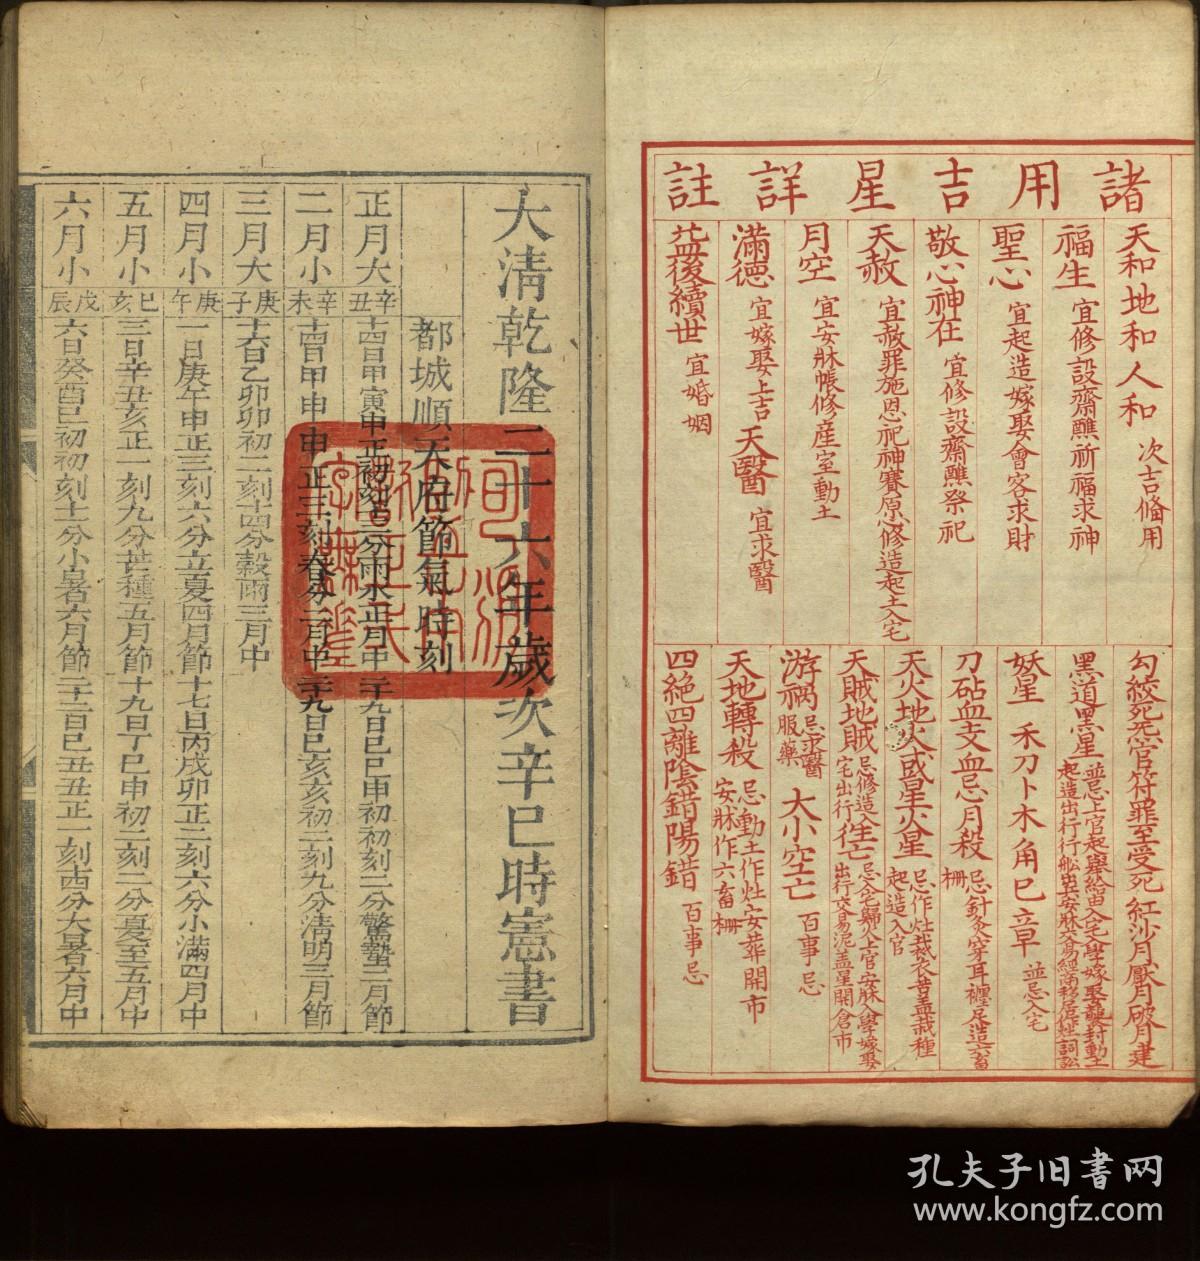 諸用吉星詳註
天和地和人和 次吉脩用
福生 宜修設齋醮祈福求神
聖心 宜起造嫁娶會客求財
敬心神在 宜修設齋醮祭祀
天赦 宜赦罪施恩祀神賽原修造起土入宅
月空 宜安牀帳修産室動土
滿德 宜嫁娶上吉 天醫 宜求醫
益後續世 宜婚姻
勾絞死炁官符罪至受死紅沙月厭月破月建
黑道黑星
妖星 禾刀卜木角巳章 並忌入宅
刀砧血支血忌月殺 忌針灸穿耳纏足造六畜栅
天火地火或星火星 忌作灶裁衣苫盖栽種起造入官
天賊地賊 忌修造入宅出行 往亡 忌入宅歸火上官安牀入學嫁娶出行交易泥盖星開倉市
游祸 忌求醫服藥 大小空亡 百事忌
天地轉殺 忌動土作灶安葬開市安牀作六畜栅
四絶四離陰錯陽錯 百事忌
大清乾隆二十六年歲次辛巳時憲書
都城順天府節氣時刻
正月大 辛丑 十四日甲寅申正初刻
二月小 辛未 十四日甲申申正三刻春分二月中 二十九日己亥亥初二刻九分清明三月節
三月大 庚子 十六日乙卯卯初二刻十四分穀雨三月中
四月小 庚午 一日庚午申正三刻六分立夏四月節 十七日丙戌卯正二刻六分小滿四月中
五月小 己亥 三日辛丑亥正一刻九分芒種五月節 十九日丁巳申初二刻二分夏至五月中
六月小 戊辰 六日癸酉巳初初刻十一分小暑六月節 二十二日己丑丑正一刻十四分大暑六月中
孔夫子旧书网
www.kongfz.com